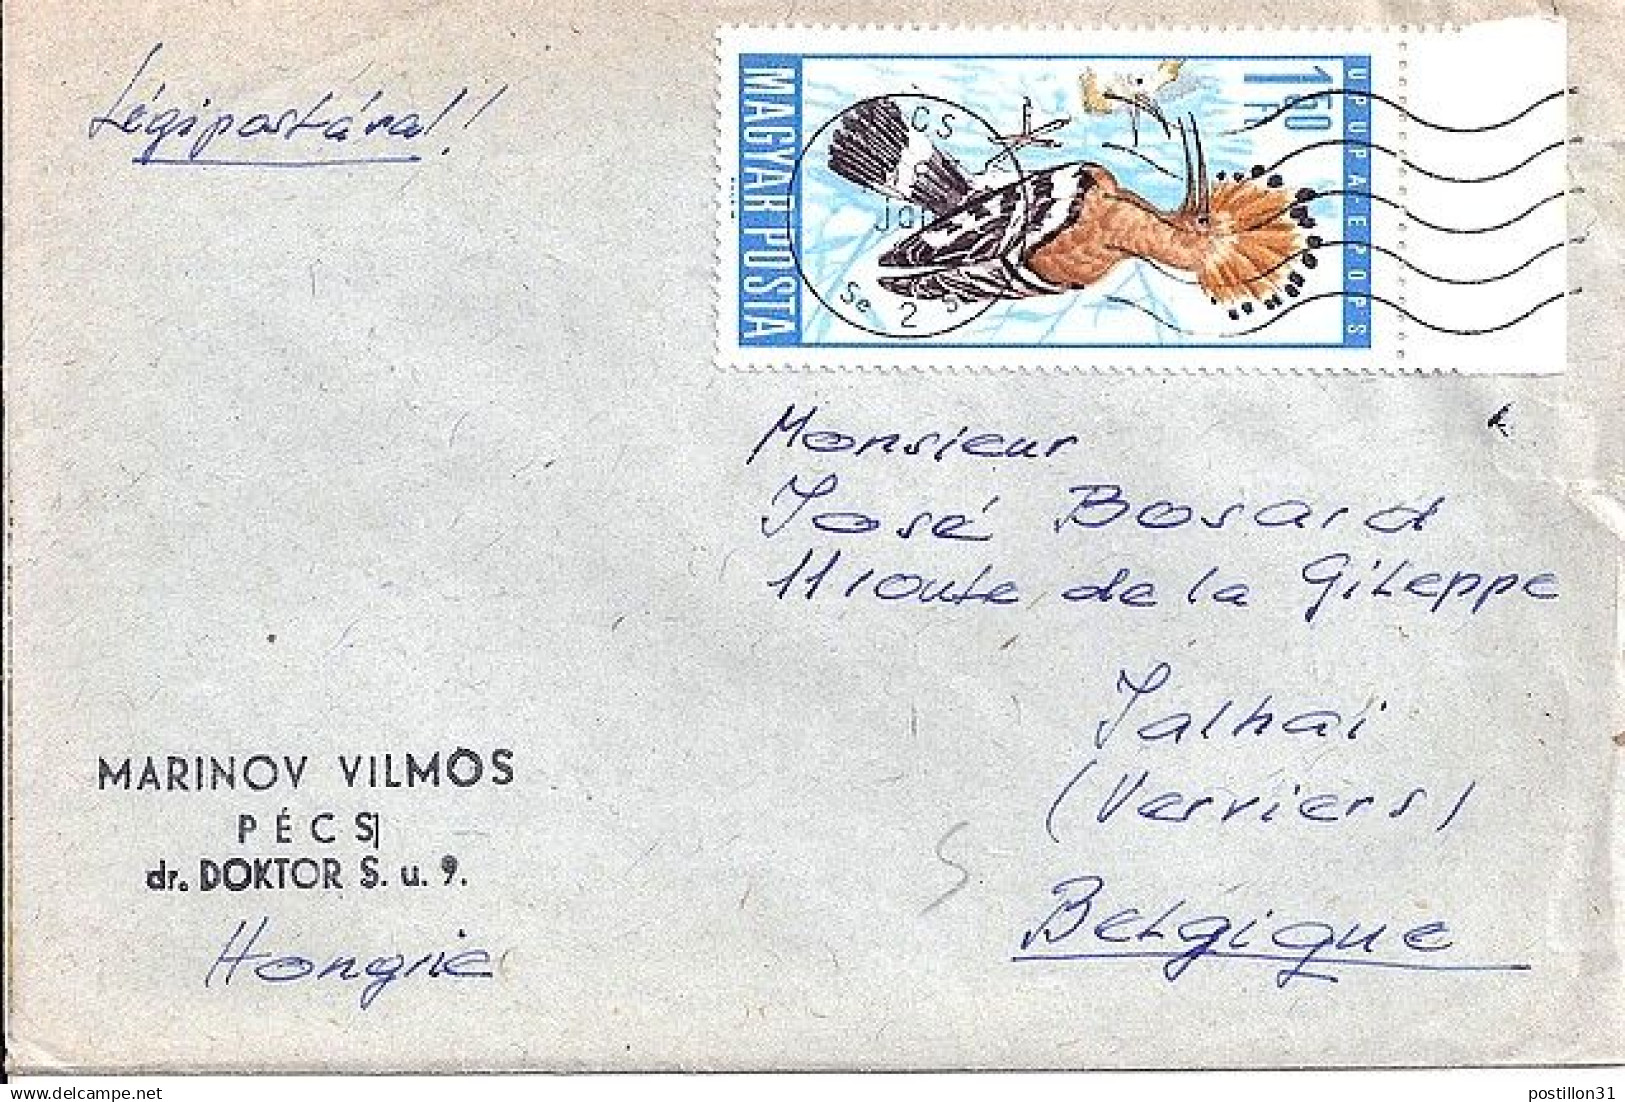 Légipostával!
MAGYAR POSTA
1 50 Ft
UPUPA-EPOPS
CS
Se 2 Se
Monsieur
José Bosard
11 route de la Gileppe
Jalhai
(Verviers)
Belgique
MARINOV VILMOS
PÉCS
dr. DOKTOR S. u. 9.
Hongrie
postillon31